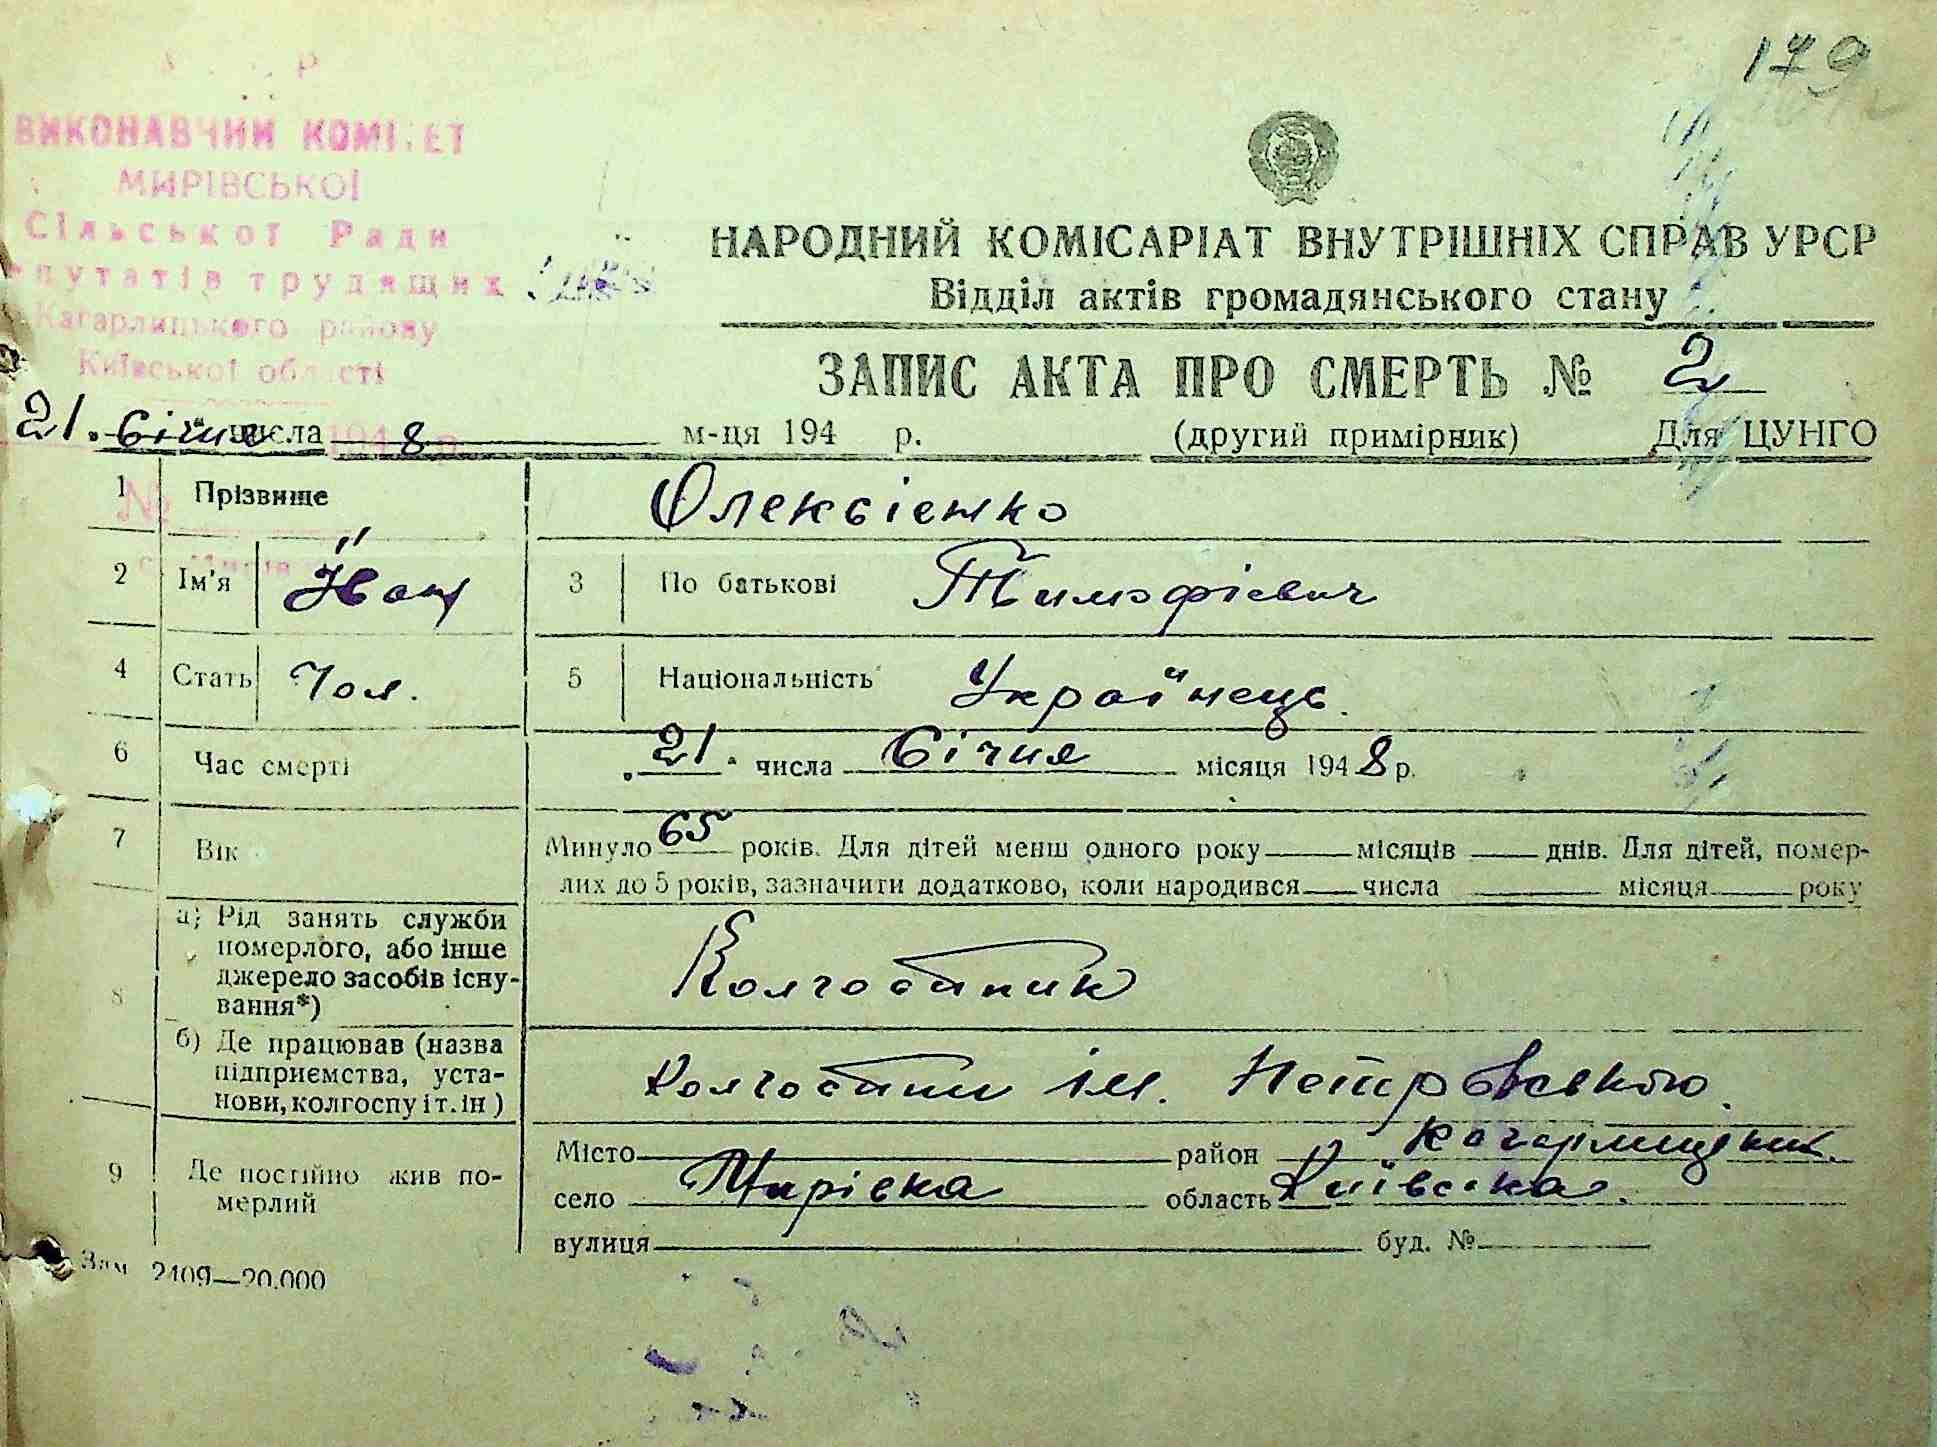 179
ВИКОНАВЧИЙ КОМІТЕТ
МИРІВСЬКОЇ
Сільської Ради
путатів трудящих
Кагарлицького району
Київської області
НАРОДНИЙ КОМІСАРІАТ ВНУТРІШНІХ СПРАВ УРСР
Відділ актів громадянського стану
ЗАПИС АКТА ПРО СМЕРТЬ № 2
21. Січня числа 8 м-ця 194 р. (другий примірник) Для ЦУНГО
№
1 Прізвище Олексієнко
2 Ім'я Іван 3 По батькові Тимофієвич
4 Стать Чол. 5 Національність Українець.
6 Час смерті „21" числа Січня місяця 1948 р.
7 Вік Минуло 65 років. Для дітей менш одного року місяців днів. Для дітей, помер-
лих до 5 років, зазначити додатково, коли народився числа місяця року
8 а) Рід занять служби
померлого, або інше
джерело засобів існу-
вання*) Колгостник
б) Де працював (назва
підприємства, уста-
нови, колгоспу і т. ін) Колгостник ім. Петровського.
9 Де постійно жив по-
мерлий
Місто район Кагарлицький.
село Мирівка область Київська.
вулиця буд. №
Зам 2409—20.000